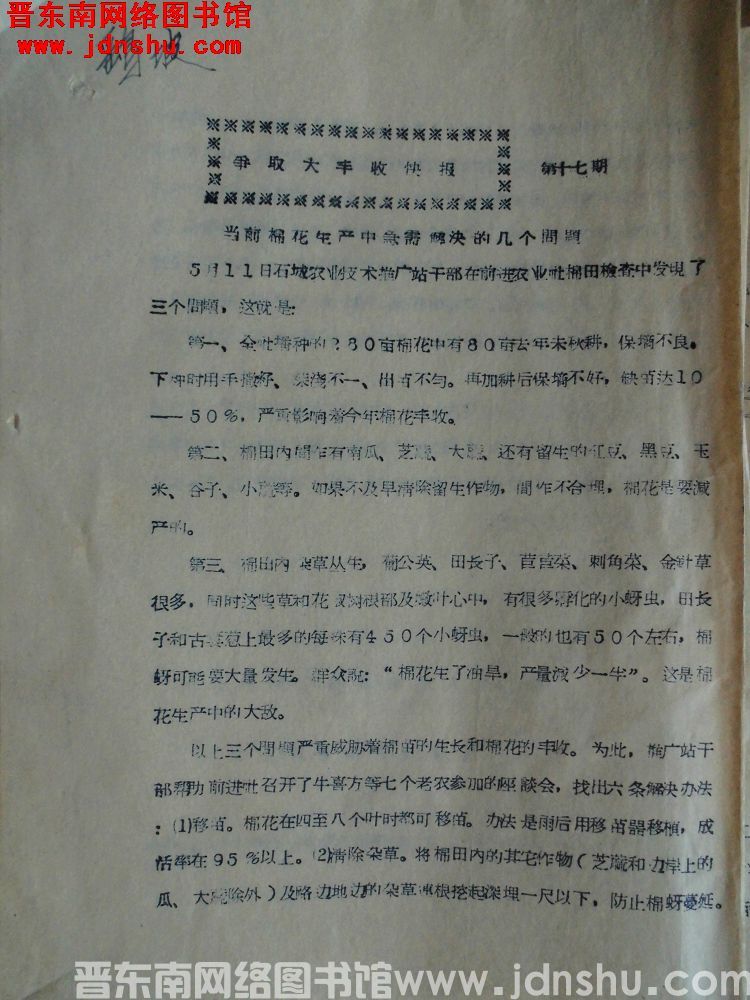 晋东南网络图书馆
www.jdnshu.com
争取大丰收快报 第十七期
当前棉花生产中急需解决的几个問題
5月11日石城农业技术推广站干部在前进农业社棉田檢查中发現了
三个問題，这就是：
第一、全社播种的280亩棉花中有80亩去年未秋耕，保墒不良。
下种时用手撒籽、深浅不一、出苗不匀。再加耕后保墒不好，缺苗达10
——50%，严重影响着今年棉花丰收。
第二、棉田内間作有南瓜、芝蔴、大蔴、还有留生的豇豆、黑豆、玉
米、谷子、小蔴等。如果不及早清除留生作物，間作不合理，棉花是要減
产的。
第三、棉田内杂草丛生，蒲公英、田長子、苣苣菜、刺角菜、金針草
很多，同时这些草和花椒树根部及嫩叶心中，有很多孵化的小蚜虫，田長
子和古蔞葱上最多的每株有450个小蚜虫，一般的也有50个左右，棉
蚜可能要大量发生。群众說：“棉花生了油旱，产量減少一半”。这是棉
花生产中的大敌。
以上三个問題严重威胁着棉苗的生長和棉花的丰收。为此，推广站干
部帮助前进社召开了牛喜方等七个老农参加的座談会，找出六条解决办法
：⑴移苗。棉花在四至八个叶时都可移苗。办法是雨后用移苗器移植，成
活率在95%以上。⑵清除杂草。将棉田内的其它作物（芝蔴和边岸上的
瓜、大蔴除外）及路边地边的杂草連根挖起深埋一尺以下，防止棉蚜蔓延。
晋东南网络图书馆www.jdnshu.com